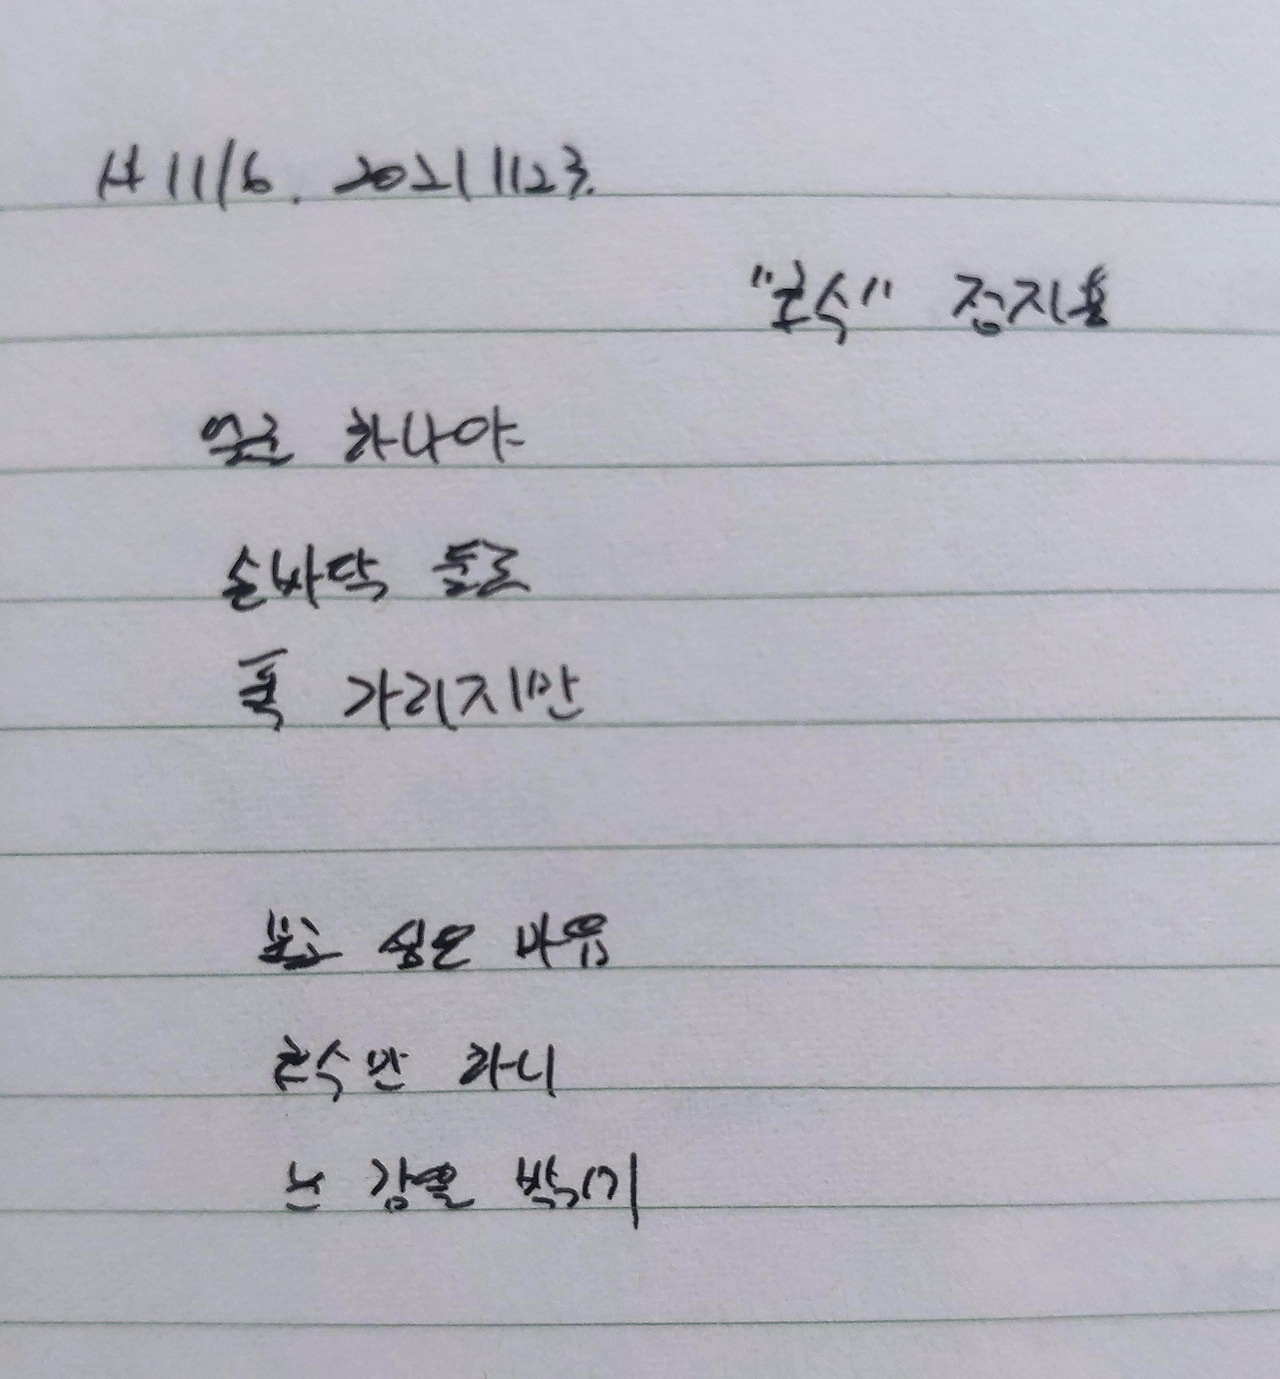 # 1116. 20211123.
"호수" 정지용
얼굴 하나야
손바닥 둘로
폭 가리지만
보고 싶은 마음
호수만 하니
눈 감을 밖에